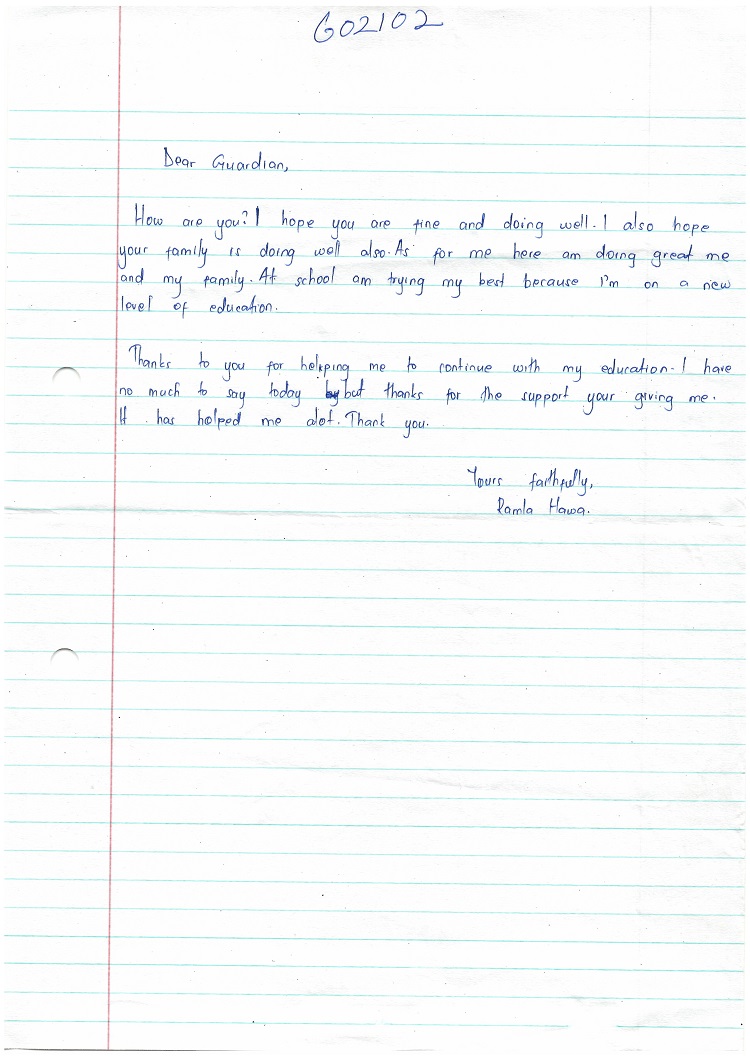 G02102
Dear Guardian,
How are you? I hope you are fine and doing well. I also hope
your family is doing well also. As for me here am doing great me
and my family. At school am trying my best because I'm on a new
level of education.
Thanks to you for helping me to continue with my education. I have
no much to say today but thanks for the support your giving me.
It has helped me alot. Thank you.
Yours faithfully,
Ramla Hawa.